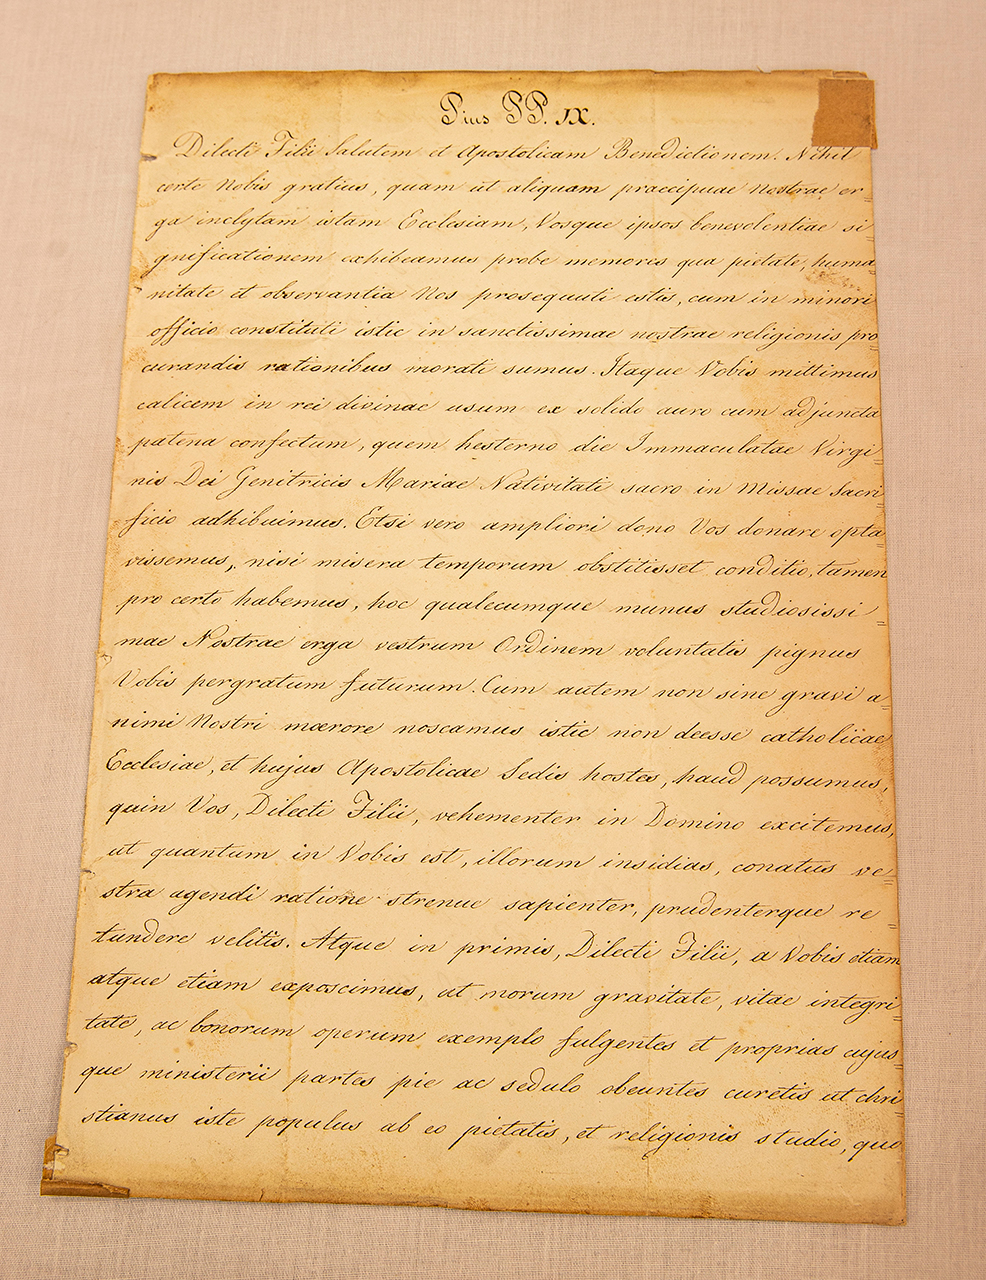 Pius PP. IX.
Dilecti Filii Salutem et Apostolicam Benedictionem. Nihil
certe Nobis gratius, quam ut aliquam praecipuae Nostrae er=
ga inclytam istam Ecclesiam, Vosque ipsos benevolentiae si=
gnificationem exhibeamus probe memores qua pietate, huma=
nitate et observantia Nos prosequuti estis, cum in minori
officio constituti istic in sanctissimae nostrae religionis pro=
curandis rationibus morati sumus. Itaque Vobis mittimus
calicem in rei divinae usum ex solido auro cum adjuncta
patena confectum, quem hesterno die Immaculatae Virgi=
nis Dei Genitricis Mariae Nativitati sacro in Missae Sacri=
ficio adhibuimus. Etsi vero ampliori dono Vos donare opta=
vissemus, nisi misera temporum obstitisset conditio, tamen
pro certo habemus, hoc qualecumque munus studiosissi=
mae Nostrae erga vestrum Ordinem voluntatis pignus
Vobis pergratum futurum. Cum autem non sine gravi a=
nimi Nostri mœrore noscamus istic non deesse catholicae
Ecclesiae, et hujus Apostolicae Sedis hostes, haud possumus,
quin Vos, Dilecti Filii, vehementer in Domino excitemus,
ut quantum in Vobis est, illorum insidias, conatus ve=
stra agendi ratione strenue sapienter, prudenterque re=
tundere velitis. Atque in primis, Dilecti Filii, a Vobis etiam
atque etiam exposcimus, ut morum gravitate, vitae integri=
tate, ac bonorum operum exemplo fulgentes et proprias cujus=
que ministerii partes pie ac sedulo obeuntes curetis ut chri=
stianus iste populus ab eo pietatis, et religionis studio, quo